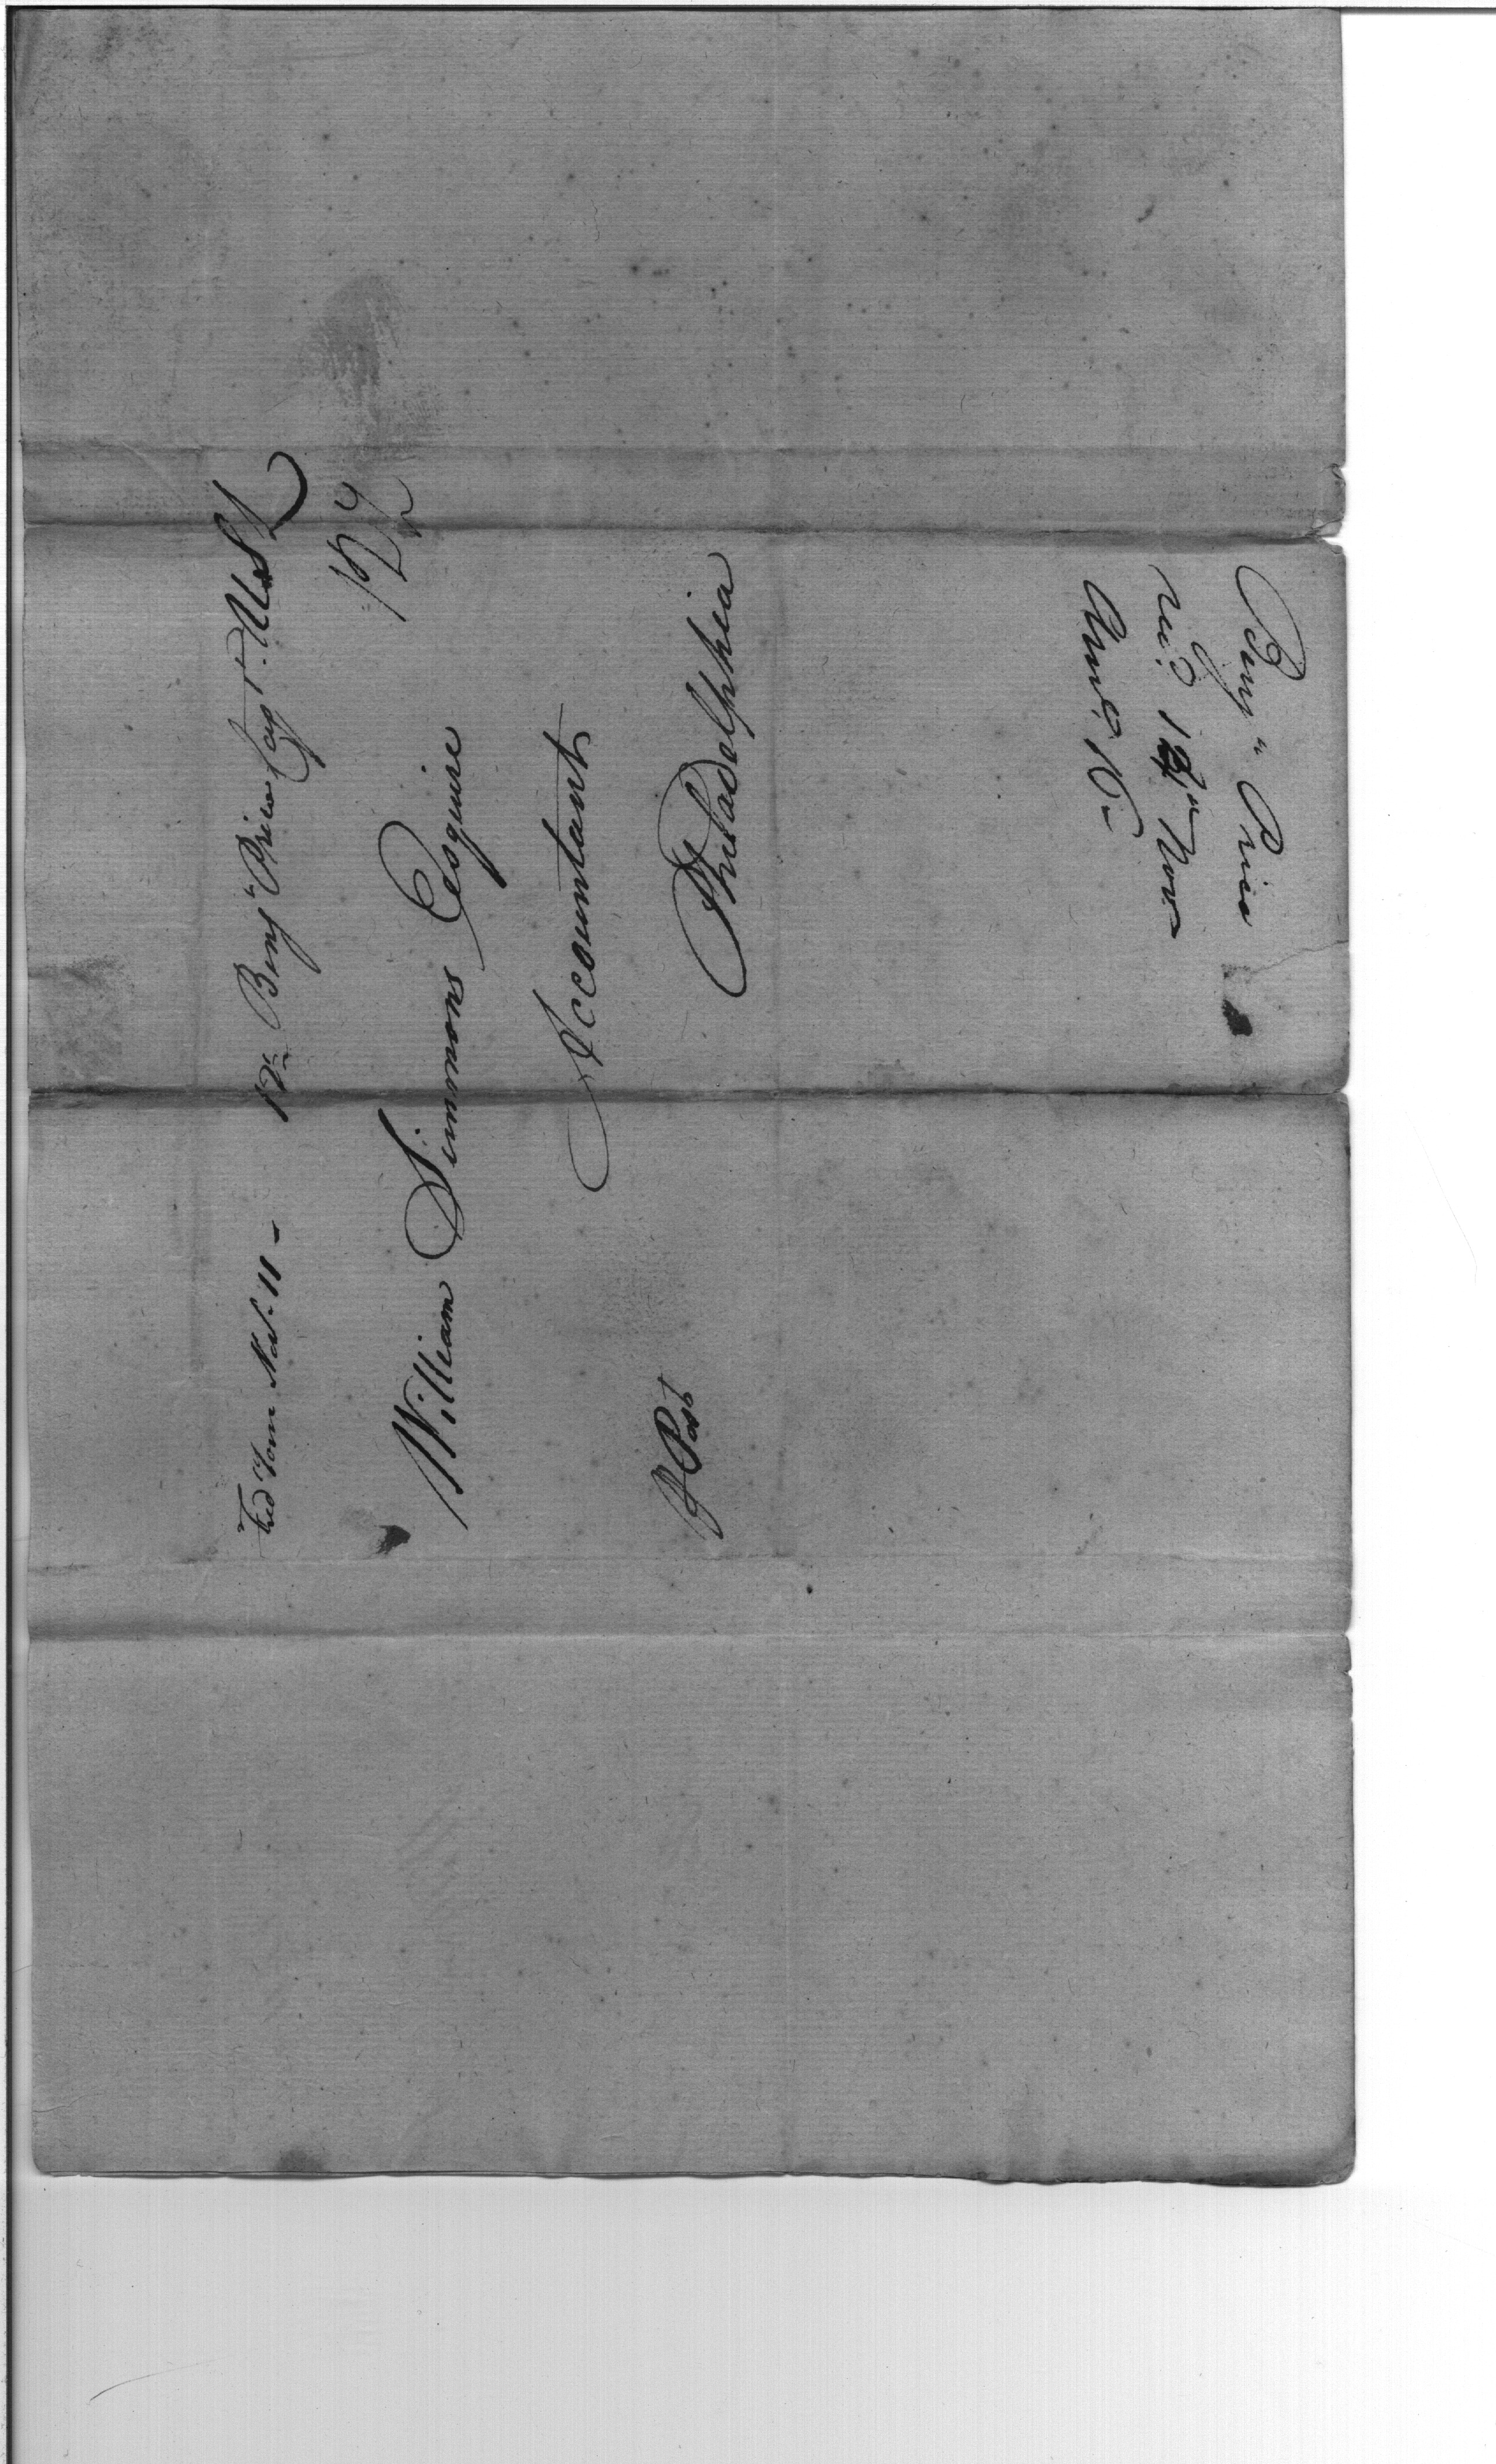 Fred Town Nov. 11 - 12 Benjn Price Capt. U.S
William Simmons Esquire
Accountant
Philadelphia
P Post
Benjn Price
recd 12th Nov
Answd 16